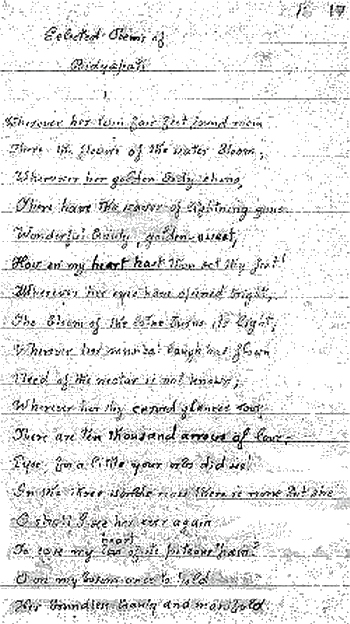 Selected Poems of
Bidyapati
1
Wherever her twin fair feet found room
There the flowers of the water bloom,
Wherever her golden body shone,
There have the waves of lightning gone.
Wonderful beauty, golden-sweet,
How in my heart hast thou set thy feet!
Wherever her eyes have opened bright,
The bloom of the lotus its light,
Wherever her musical laugh has flown
Need of the nectar is not known,
Wherever her shy curved glances rove
There are ten thousand arrows of love.
Eyes, for a little your orbs did
In the three worlds now there is none but she
O shall I see her ever again
To ease my heart of its pain?
O on my bosom once to hold
Her boundless beauty and manifold